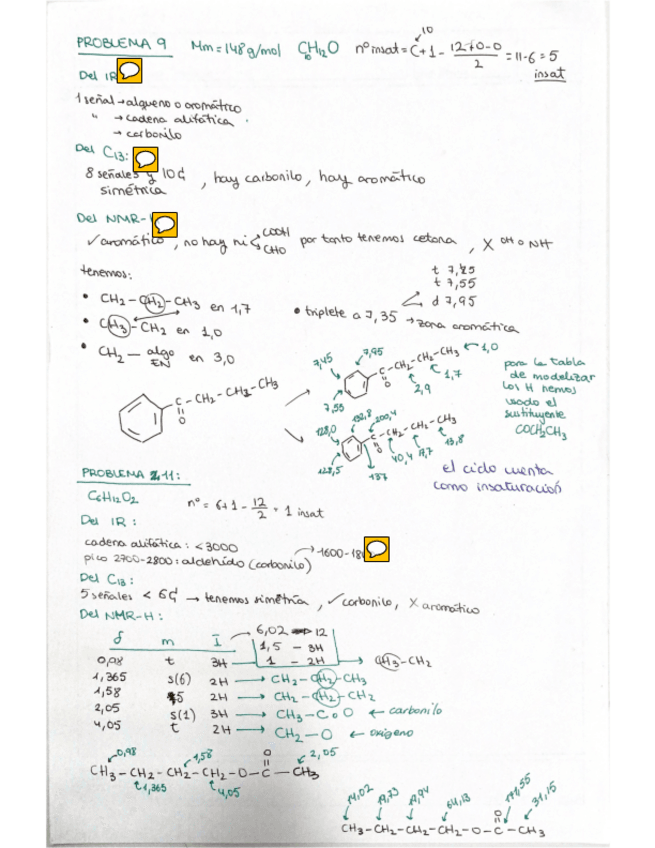 PROBLEMA 9 Mm = 148 g/mol C10H12O nº insat = C + 1 - (12+0-0)/2 = 11-6 = 5
10
insat
Del IR
1 señal → alqueno o aromático
" → cadena alifática
→ carbonilo
Del C13:
8 señales y 10 C, hay carbonilo, hay aromático
simétrica
Del NMR-
✓ aromático, no hay ni COOH CHO por tanto tenemos cetona, X OH o NH
tenemos:
t 7,55
d 7,95
• CH2-CH2-CH3 en 1,7
• triplete a 7,35 → zona aromática
• CH3-CH2 en 1,0
• CH2 — algo EN en 3,0
C-CH2-CH2-CH3
O
7,45 7,95 C-CH2-CH2-CH3 1,0
O
7,55 2,9 1,7
para la tabla
de modelizar
los H hemos
usado el
sustituyente
COCH2CH3
132,8 200,4
128,0 C-CH2-CH2-CH3
O
128,5 137 40,4 17,7 13,8
el ciclo cuenta
como insaturación
PROBLEMA 2,11:
C6H12O2 nº = 6+1 - 12/2 = 1 insat
Del IR:
cadena alifática: < 3000
pico 2700-2800: aldehído (carbonilo)
Del C13:
5 señales < 6C → tenemos simetría, ✓ carbonilo, X aromático
Del NMR-H:
δ m I 6,02 → 12
1,5 - 3H
0,98 t 3H 1 - 2H → CH3-CH2
1,365 s(6) 2H → CH2-CH2-CH3
1,58 5 2H → CH2-CH2-CH2
2,05 s(1) 3H → CH3-COO ← carbonilo
4,05 t 2H → CH2-O ← oxígeno
0,98 1,58 O 2,05
CH3-CH2-CH2-CH2-O-C-CH3
1,365 4,05
64,13 31,15
O
CH3-CH2-CH2-CH2-O-C-CH3